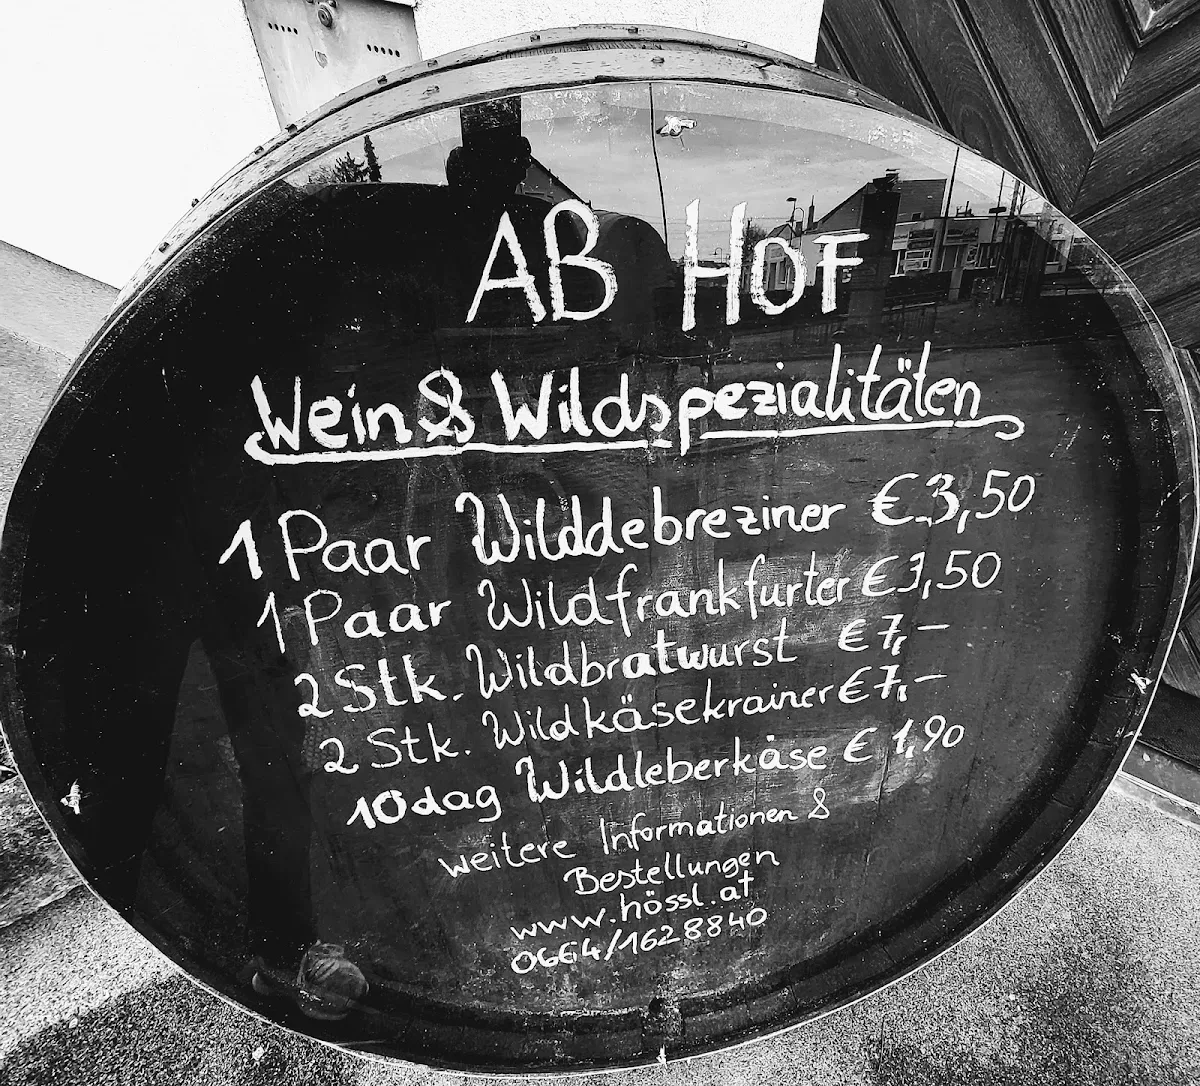 AB HOF
Wein & Wildspezialitäten
1 Paar Wilddebreziner € 3,50
1 Paar Wildfrankfurter € 3,50
2 Stk. Wildbratwurst € 7,-
2 Stk. Wildkäsekrainer € 7,-
10dag Wildleberkäse € 1,90
weitere Informationen &
Bestellungen
www.hössl.at
0664/1628840